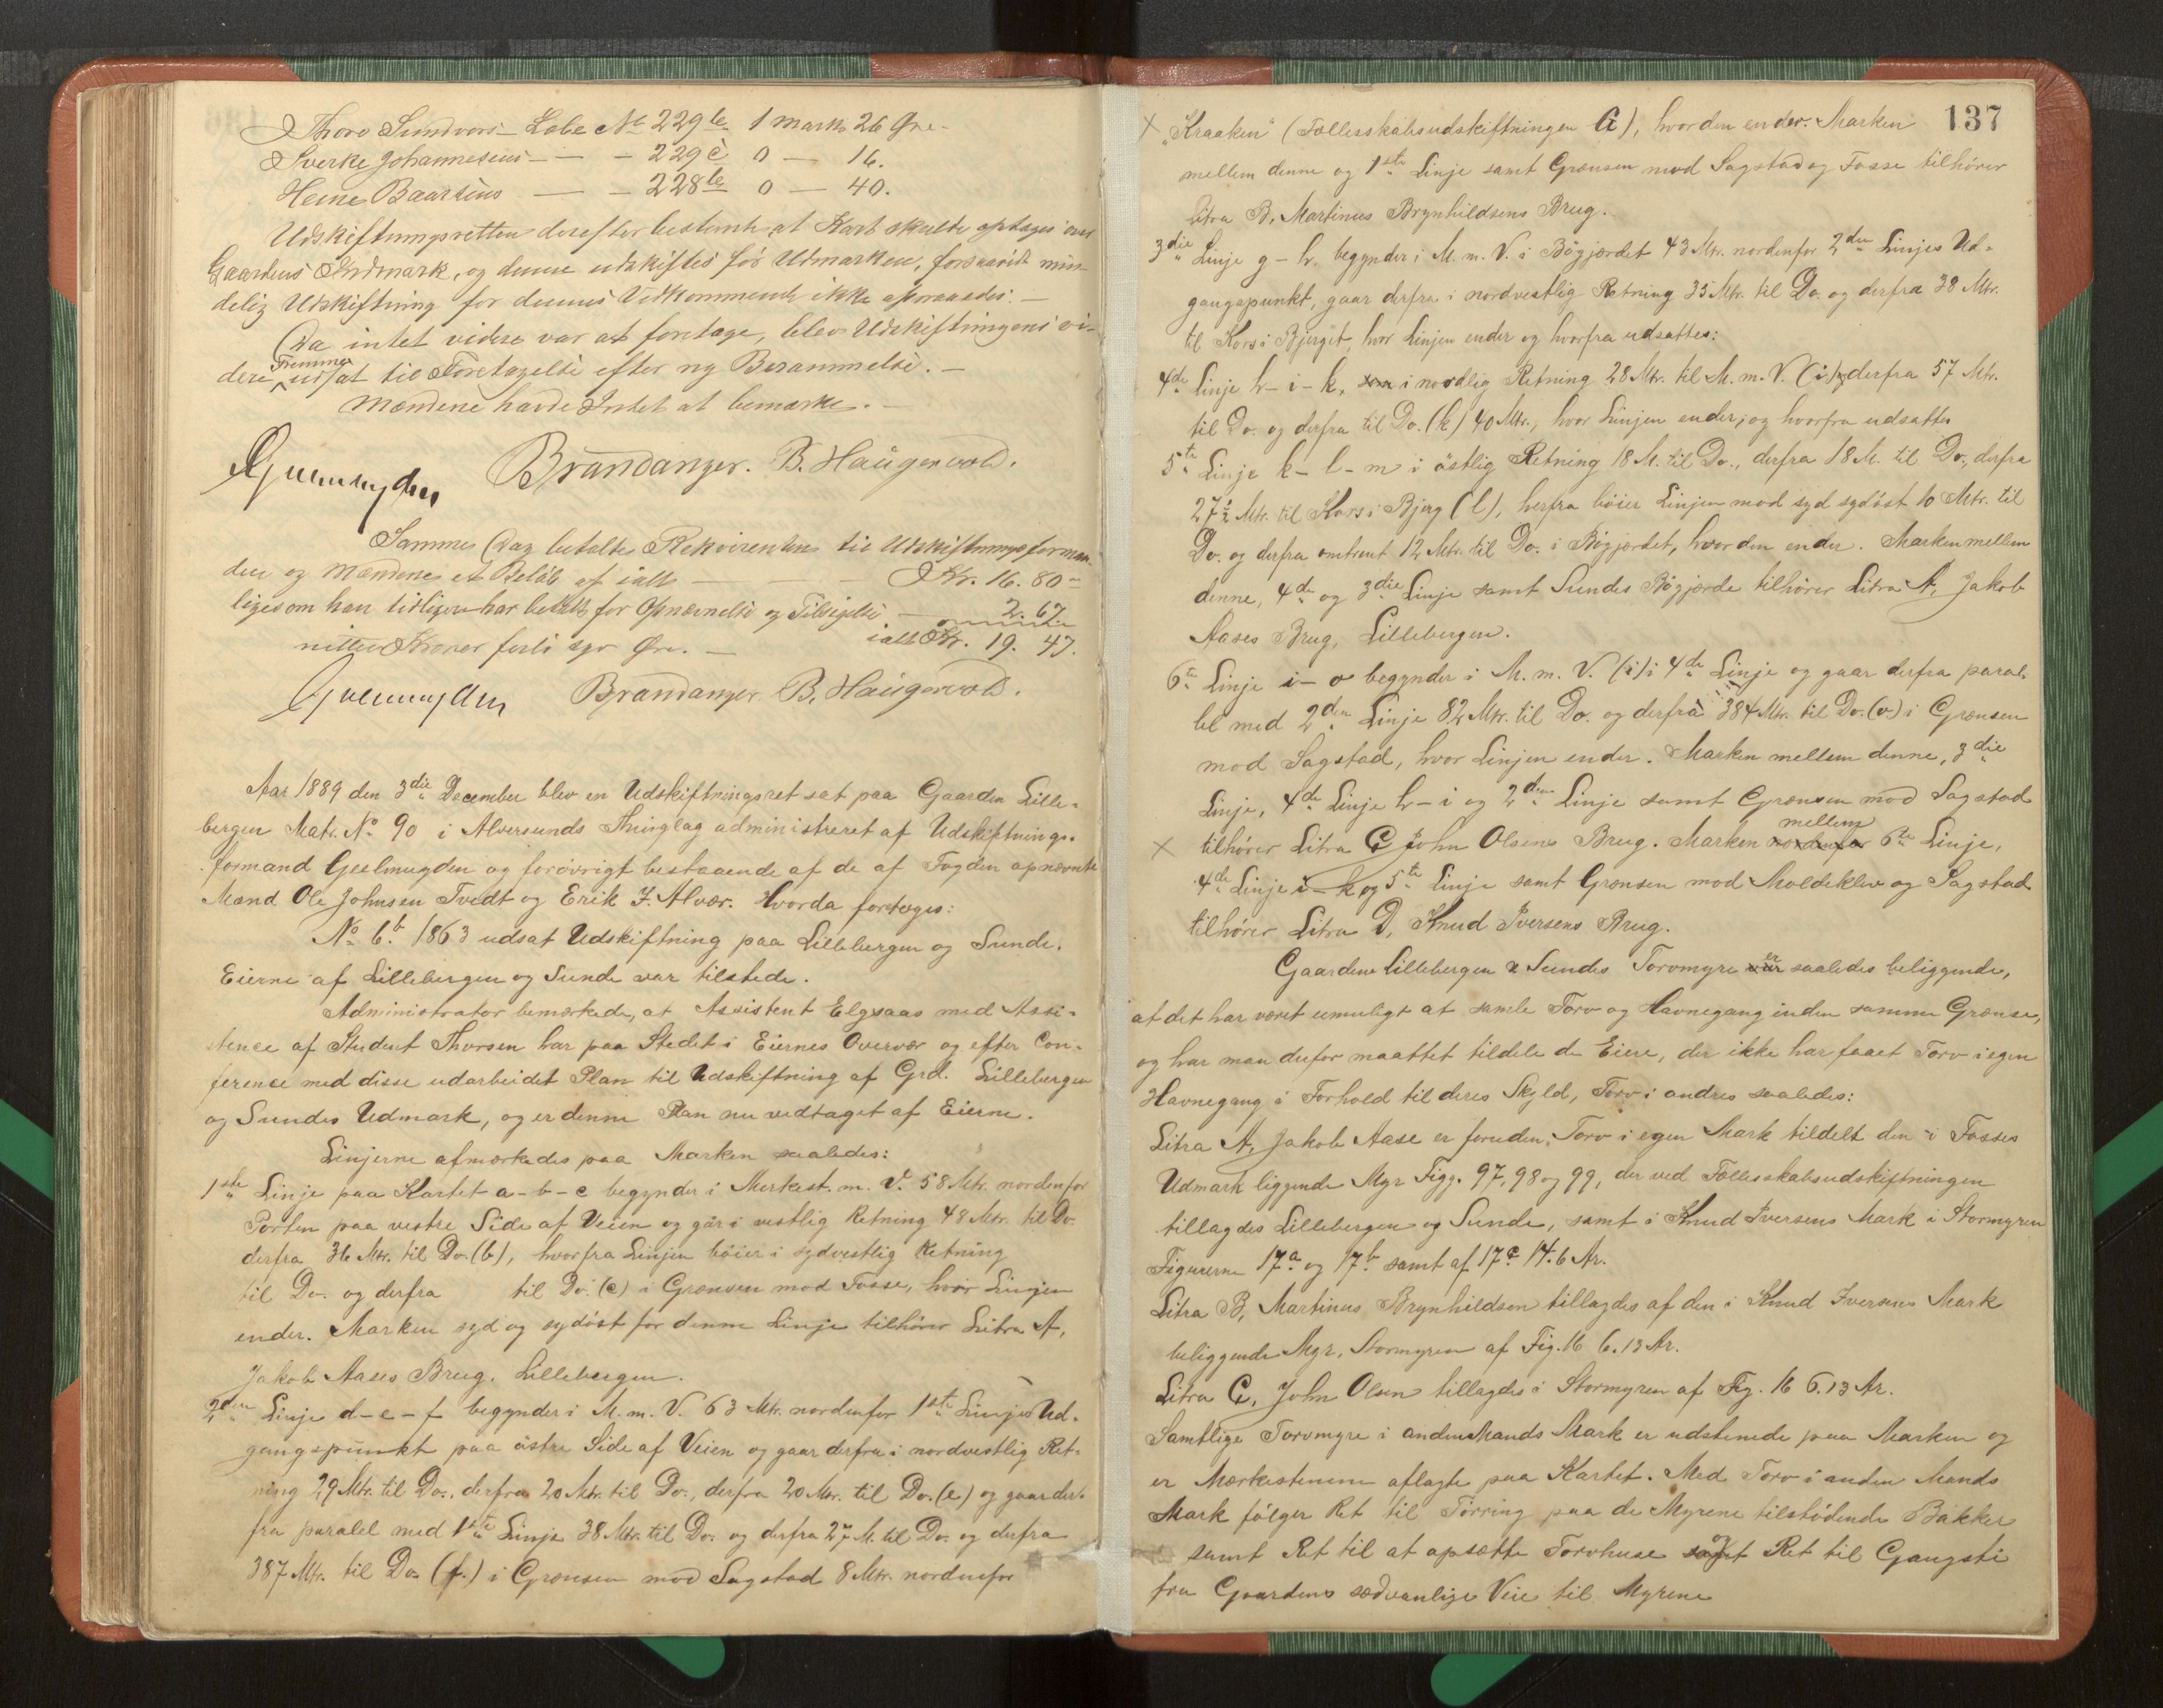 Thore Sundvors - Løbe No 229 b. 1 mark 26 Øre.
Sverke Johannesens — — 229 c 0 — 16.
Heine Baarsens — — 228 b 0 — 40.
Udskiftningsretten derefter bestemte at Kart skulde optages over
Gaardens Indmark, og denne udskiftes før Udmarken, forsaavidt min-
delig Udskiftning for dennes Vedkommende ikke opnaaedes. —
Da intet videre var at foretage, blev Udskiftningens vi-
dere Fremme udsat til Foretagelse efter ny Berammelse. —
Mændene havde Intet at bemærke. —
Gjelmuyden Brandanger. B. Haugsvold.
Samme Dag betalte Rekvirenten til Udskiftningsforman-
den og Mændene et Beløb af ialt — — — Kr. 16. 80 —
ligesom han tidligere har betalt for Opnævnelse og Tilsigelse — 2. 67
nitten Kroner førti syv Øre. — ialt Kr. 19. 47.
Gjelmuyden Brandanger. B. Haugsvold.
Aar 1889 den 3die December blev en Udskiftningsret sat paa Gaarden Lille-
bergen Matr. No 90 i Alversunds Thinglag administreret af Udskiftnings-
formand Gjelmuyden og forøvrigt bestaaende af de af Fogden opnævnte
Mænd Ole Johnsen Tvedt og Erik J. Alvær. Hvorda foretoges:
No 6 b. 1863 udsat Udskiftning paa Lillebergen og Sunde.
Eierne af Lillebergen og Sunde var tilstede.
Administrator bemærkede, at Assistent Elgsaas med Assi-
stence af Student Thorsen har paa Stedet i Eiernes Overvær og efter Con-
ference med disse udarbeidet Plan til Udskiftning af Grd. Lillebergen
og Sundes Udmark, og er denne Plan nu vedtaget af Eierne.
Linjerne afmærkedes paa Marken saaledes:
1ste Linje paa Kartet a-b-c begynder i Merkest. m. V. 58 Mtr. nordenfor
Porten paa vestre Side af Veien og går i vestlig Retning 48 Mtr. til Do.
derfra 36 Mtr. til Do. (b), hvorfra Linjen bøier i sydvestlig Retning
til Do. og derfra til Do. (c) i Grænsen mod Fosse, hvor Linjen
ender. Marken syd og sydøst for denne Linje tilhører Litra A,
Jakob Aases Brug. Lillebergen.
2den Linje d-e-f begynder i M. m. V. 63 Mtr. nordenfor 1ste Linjes Ud-
gangspunkt paa østre Side af Veien og gaar derfra i nordvestlig Ret-
ning 29 Mtr. til Do., derfra 20 Mtr. til Do., derfra 20 Mtr. til Do. (e) og gaar der-
fra paralel med 1ste Linje 38 Mtr. til Do. og derfra 27 M. til Do. og derfra
387 Mtr. til Do. (f.) i Grænsen mod Sagstad 8 Mtr. nordenfor
137
× "Kraaken" (Fællesskabsudskiftningen G), hvor den ender. Marken
mellem denne og 1ste Linje samt Grænsen mod Sagstad og Fosse tilhører
Litra B, Martinus Brynhildsens Brug.
3die Linje g-h. begynder i M. m. V. i Bøgjærdet 43 Mtr. nordenfor 2den Linjes Ud-
gangspunkt, gaar derfra i nordvestlig Retning 35 Mtr. til Do. og derfra 38 Mtr.
til Kors i Bjerget, hvor Linjen ender og hvorfra udsattes:
4de Linje h-i-k, i nordlig Retning 28 Mtr. til M. m. V. (i) derfra 57 Mtr.
til Do. og derfra til Do. (k) 40 Mtr., hvor Linjen ender; og hvorfra udsattes
5te Linje k-l-m i østlig Retning 18 M. til Do., derfra 18 M. til Do., derfra
27½ Mtr. til Kors i Bjerg (l), herfra bøier Linjen mod syd sydøst 10 Mtr. til
Do. og derfra omtrent 12 Mtr. til Do. i Bøgjærdet, hvor den ender. Marken mellem
denne, 4de og 3die Linje samt Sundes Bøgjærde tilhører Litra A, Jakob
Aases Brug, Lillebergen.
6te Linje i-o begynder i M. m. V. (i) i 4de Linje og gaar derfra paral-
lel med 2den Linje 82 Mtr. til Do. og derfra 384 Mtr. til Do. (o) i Grænsen
mod Sagstad, hvor Linjen ender. Marken mellem denne, 3die
Linje, 4de Linje h-i og 2den Linje samt Grænsen mod Sagstad
× tilhører Litra C John Olsens Brug. Marken nordenfor mellem 6te Linje,
4de Linje i-k og 5te Linje samt Grænsen mod Moldeklev og Sagstad
tilhører Litra D, Knud Iversens Brug.
Gaardene Lillebergen & Sundes Torvmyre er saaledes beliggende,
at det har været umuligt at samle Torv og Havnegang inden samme Grænse,
og har man derfor maattet tildele de Eiere, der ikke har faaet Torv i egen
Havnegang i Forhold til deres Skyld, Torv i andres saaledes:
Litra A, Jakob Aase er foruden Torv i egen Mark tildelt den i Fosses
Udmark liggende Myr Figg. 97, 98 og 99, der ved Fællesskabsudskiftningen
tillagdes Lillebergen og Sunde, samt i Knud Iversens Mark i Stormyren
Figurerne 17a og 17b samt af 17c 14.6 Ar.
Litra B, Martinus Brynhildsen tillagdes af den i Knud Iversens Mark
beliggende Myr, Stormyren af Fig. 16 6.13 Ar.
Litra C, John Olsen tillagdes i Stormyren af Fig. 16 6.13 Ar.
Samtlige Torvmyre i anden Mands Mark er udstenede paa Marken og
er Mærkestenene aflagte paa Kartet. Med Torv i anden Mands
Mark følger Ret til Tørring paa de Myrene tilstødende Bakker
samt Ret til at opsætte Torvhuse og Ret til Gangsti
fra Gaardens sædvanlige Veie til Myrene